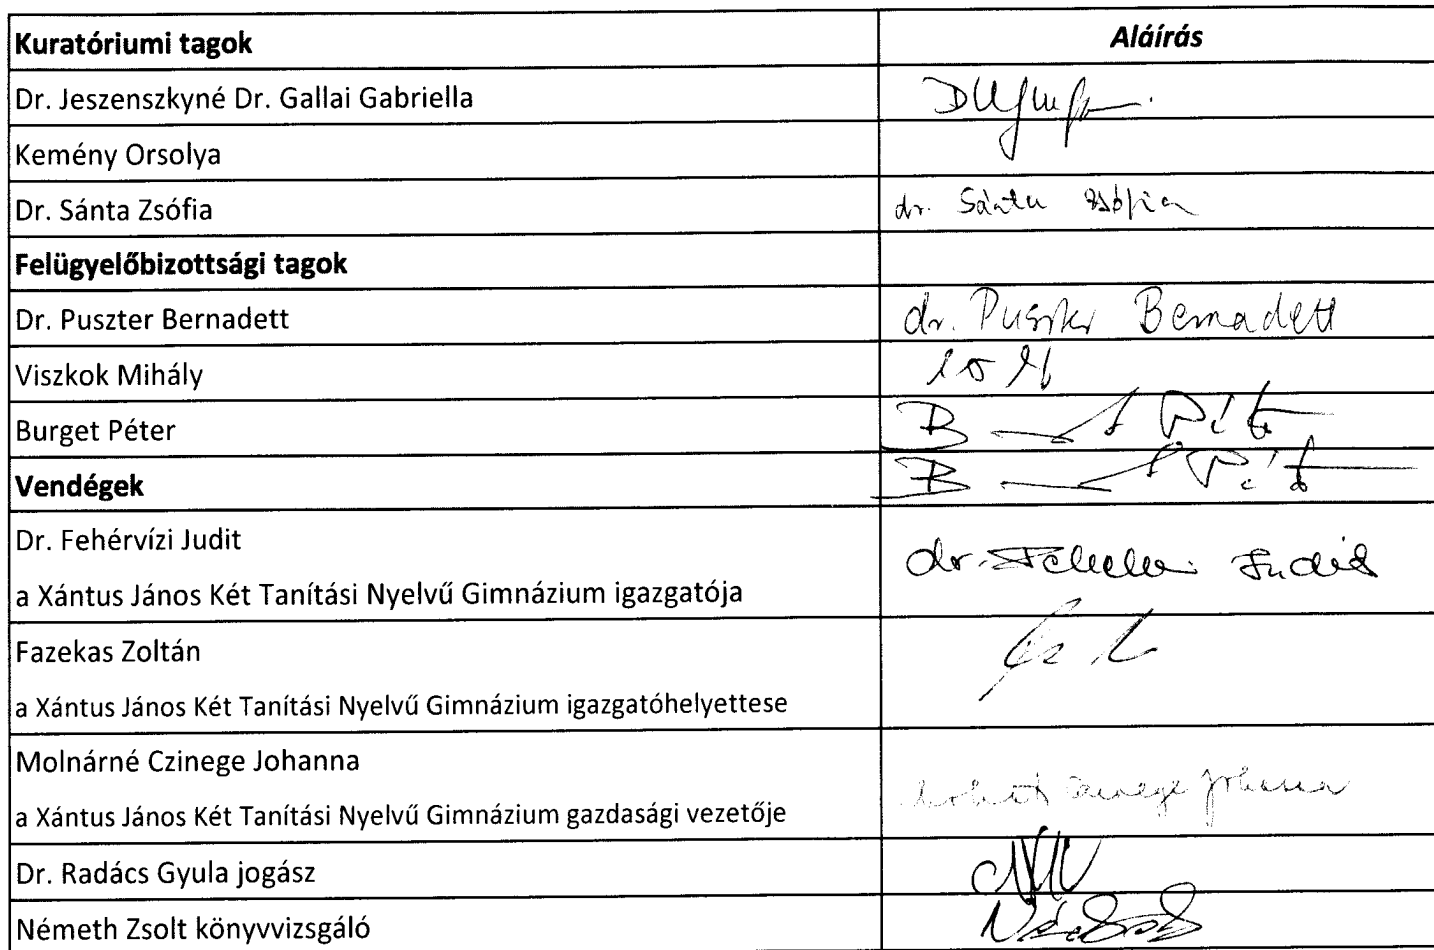 Kuratóriumi tagok Aláírás
Dr. Jeszenszkyné Dr. Gallai Gabriella
Kemény Orsolya
Dr. Sánta Zsófia dr. Sánta Zsófia
Felügyelőbizottsági tagok
Dr. Puszter Bernadett dr. Puszter Bernadett
Viszkok Mihály
Burget Péter
Vendégek
Dr. Fehérvízi Judit
a Xántus János Két Tanítási Nyelvű Gimnázium igazgatója
Fazekas Zoltán
a Xántus János Két Tanítási Nyelvű Gimnázium igazgatóhelyettese
Molnárné Czinege Johanna
a Xántus János Két Tanítási Nyelvű Gimnázium gazdasági vezetője
Dr. Radács Gyula jogász
Németh Zsolt könyvvizsgáló